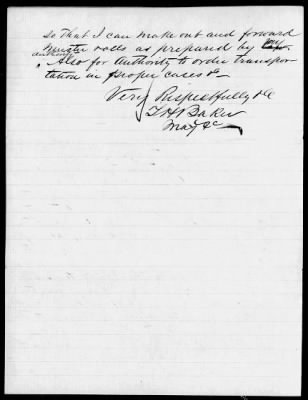 so that I can make out and forward
Muster rolls as prepared by
authority
. Also for Authority to order transpor
tation in proper cases &c
Very Respectfully &c
T H Baker
Maj &c